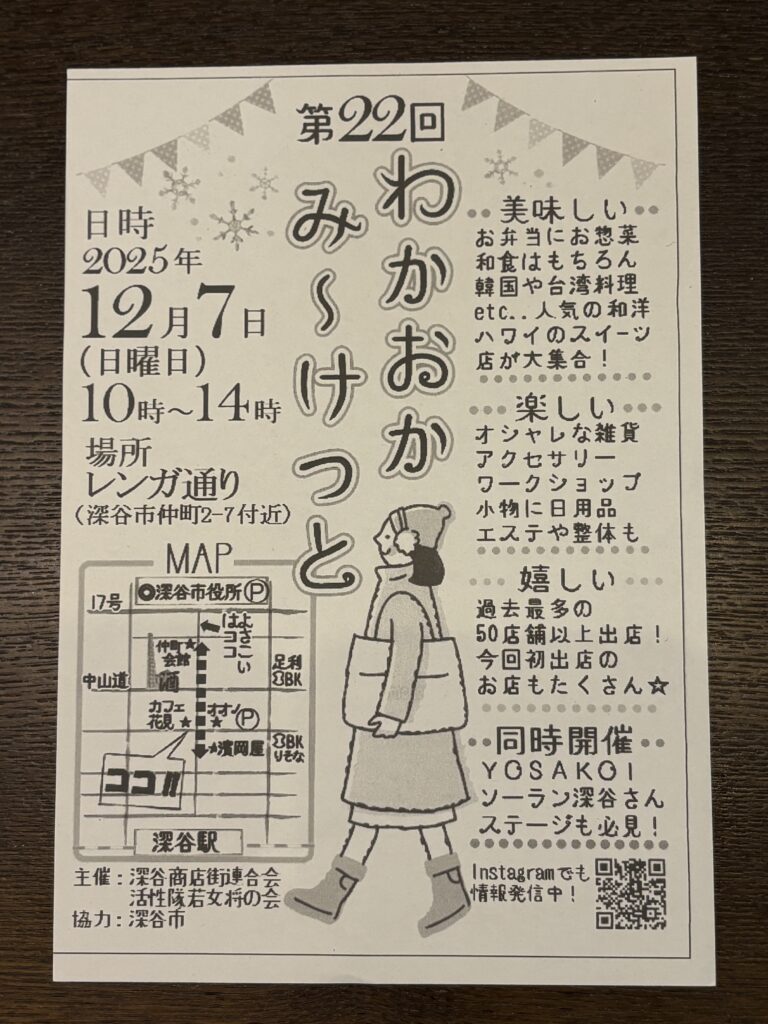 第22回
わかおか
み〜けっと
日時
2025年
12月7日
(日曜日)
10時〜14時
場所
レンガ通り
(深谷市仲町2-7付近)
MAP
◎深谷市役所Ⓟ
17号
よさこい
はココ
仲町★
会館
中山道
足利
BK
カフェ
花見★
オオノ
★
Ⓟ
★濱岡屋
BK
りそな
ココ!!
深谷駅
主催:深谷商店街連合会
活性隊若女将の会
協力:深谷市
美味しい
お弁当にお惣菜
和食はもちろん
韓国や台湾料理
etc..人気の和洋
ハワイのスイーツ
店が大集合!
楽しい
オシャレな雑貨
アクセサリー
ワークショップ
小物に日用品
エステや整体も
嬉しい
過去最多の
50店舗以上出店!
今回初出店の
お店もたくさん☆
同時開催
YOSAKOI
ソーラン深谷さん
ステージも必見!
Instagramでも
情報発信中!